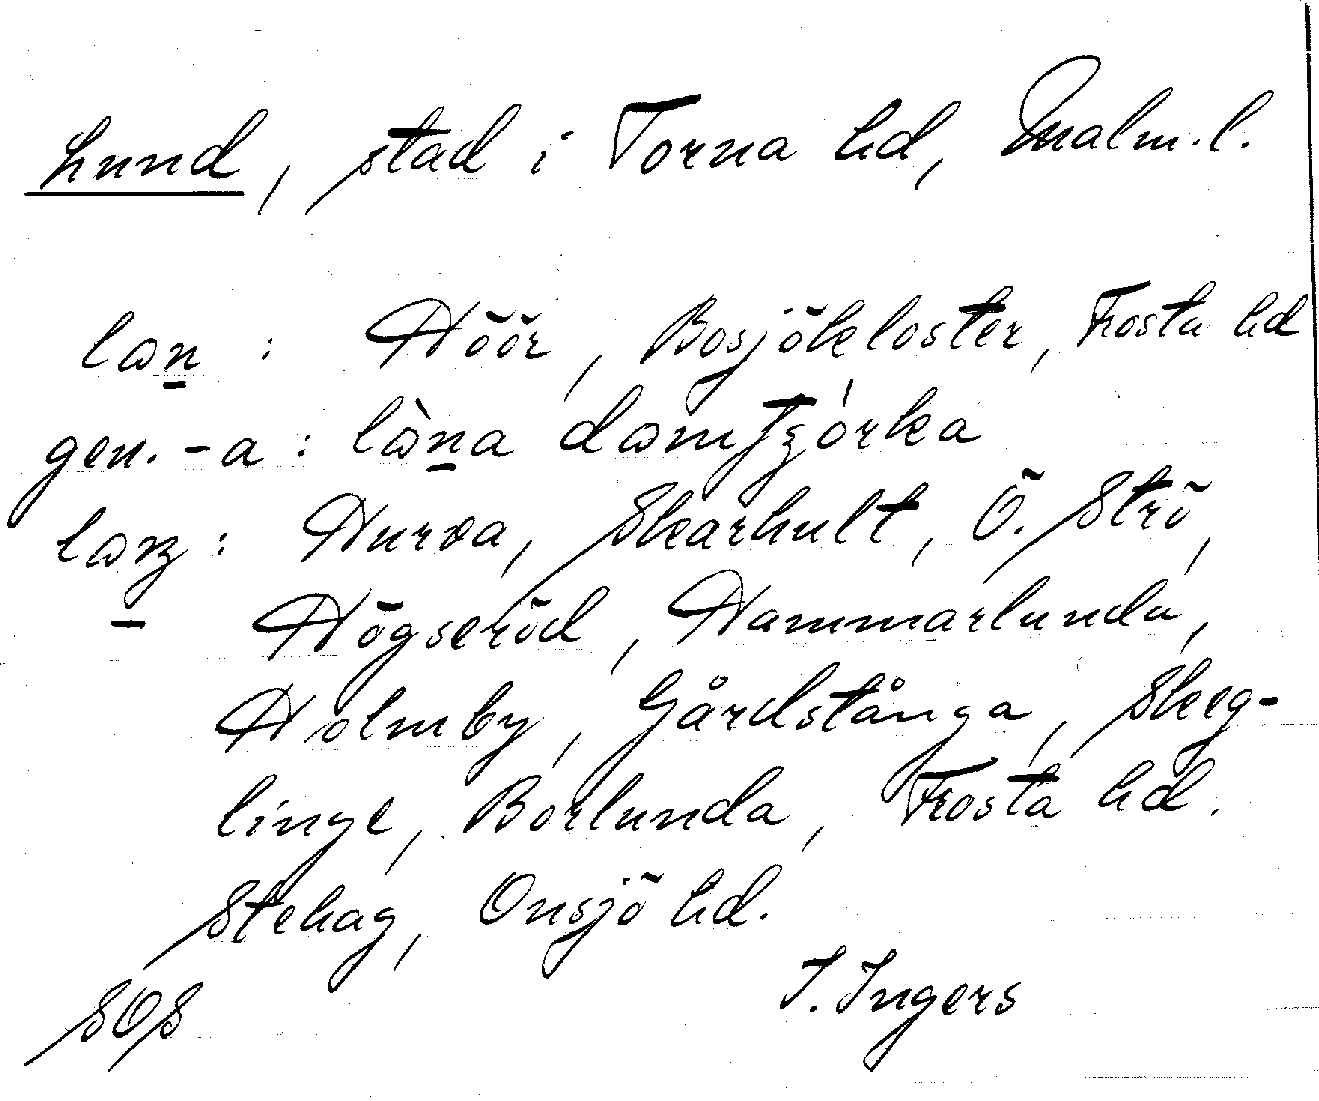 Lund, stad i Torna hd, Malm.l.
Höör, Bosjökloster, Frosta hd
gen. -a :
Hurva, Skarhult, Ö. Strö,
Högseröd, Hammarlunda,
Holmby, Gårdstånga, Skeg-
linge, Borlunda, Frosta hd.
Stehag, Onsjö hd.
I. Ingers
SOS